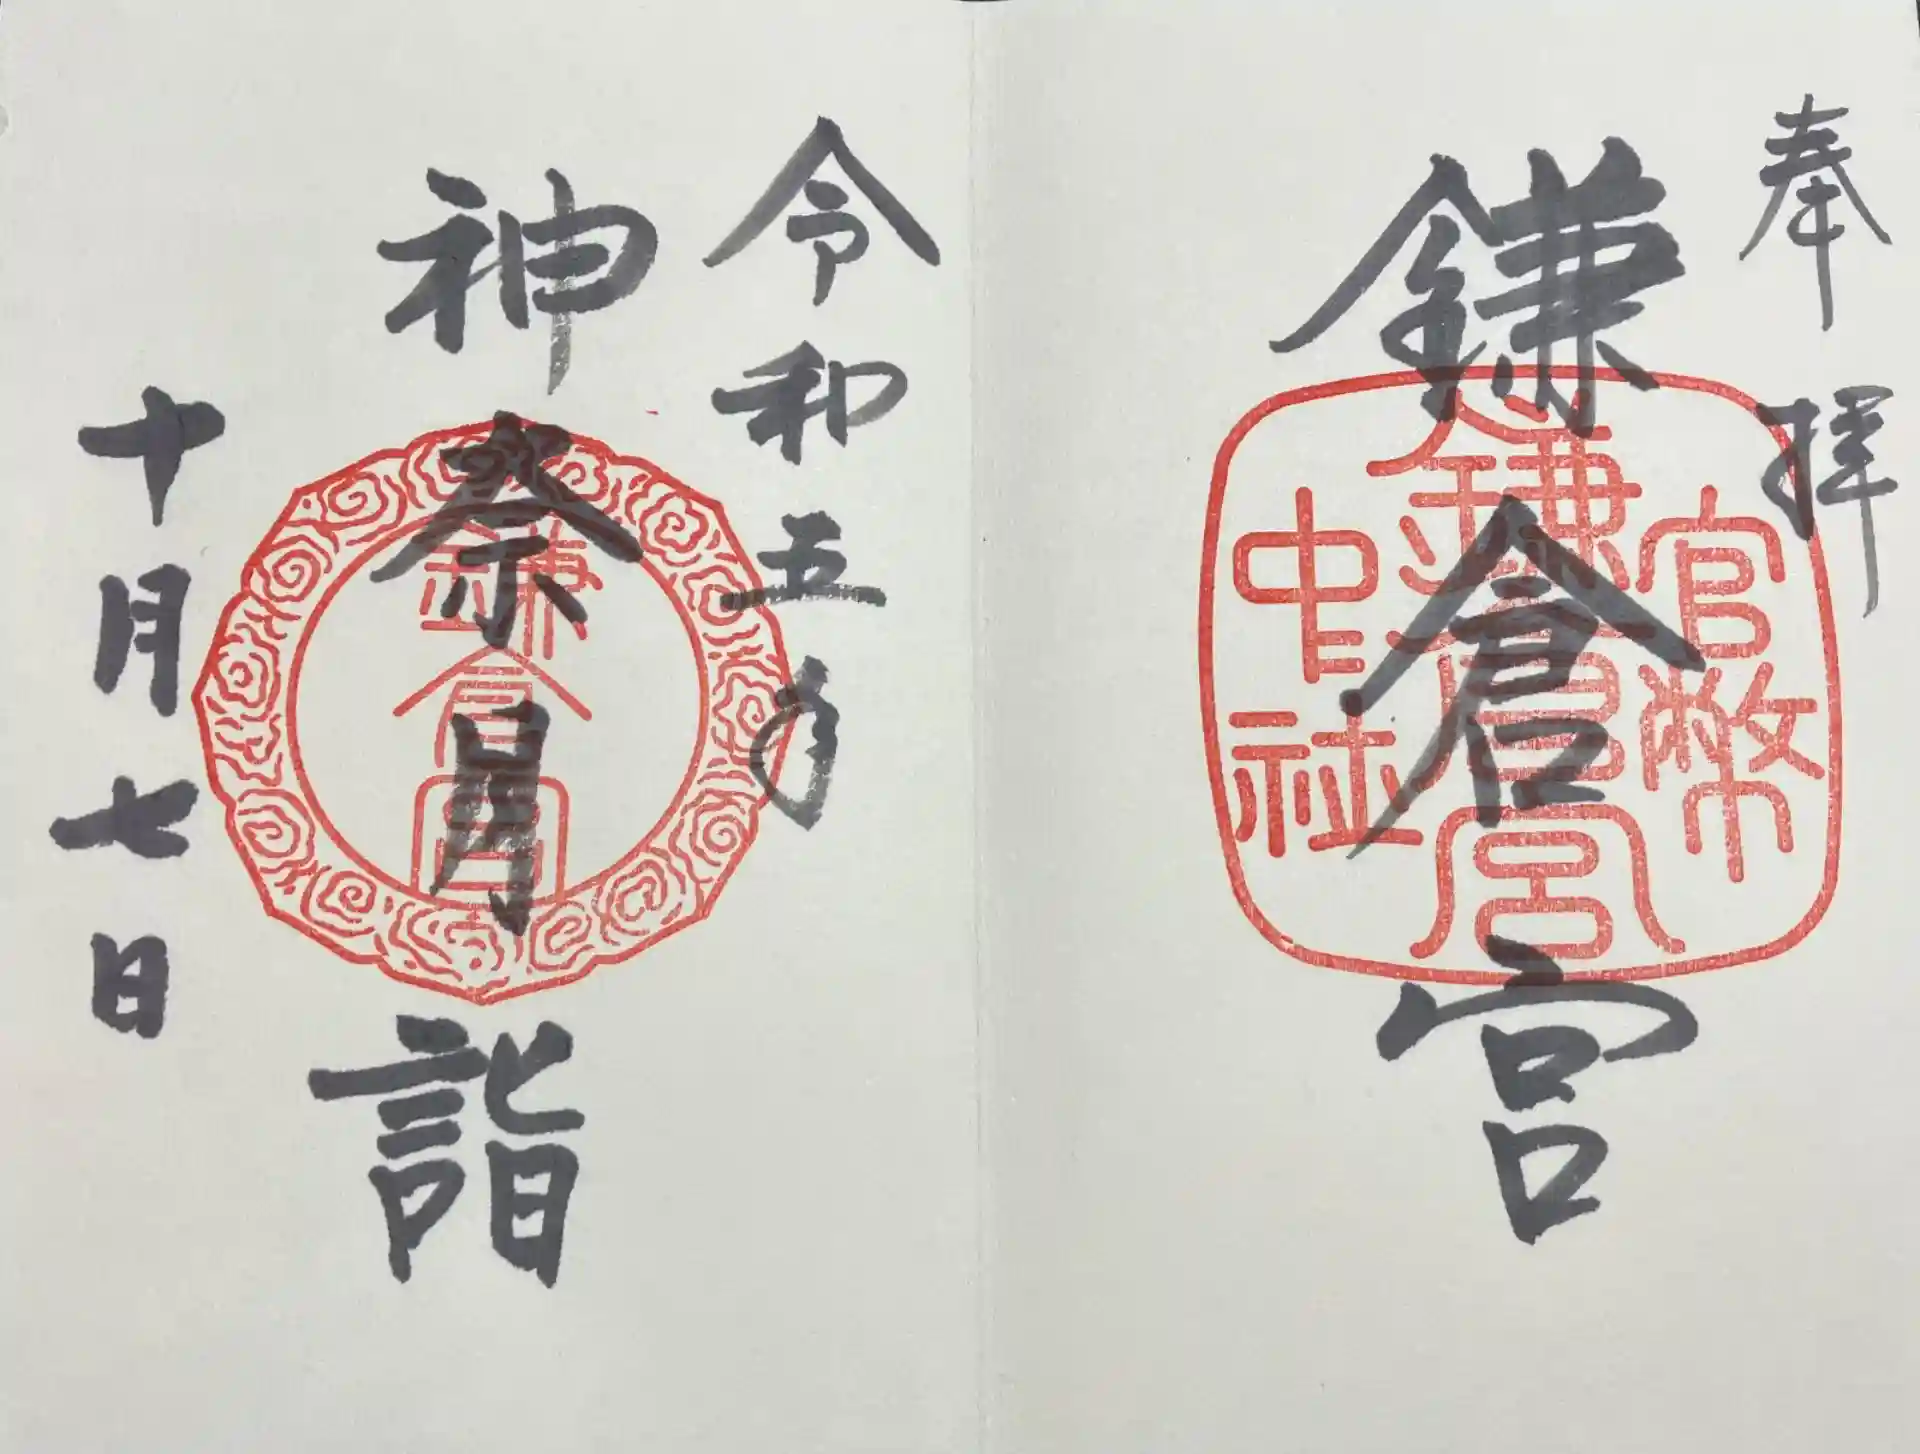 奉拝
鎌倉宮
官幣
鎌倉宮
中社
令和五年
神奈月詣
鎌倉宮
十月七日